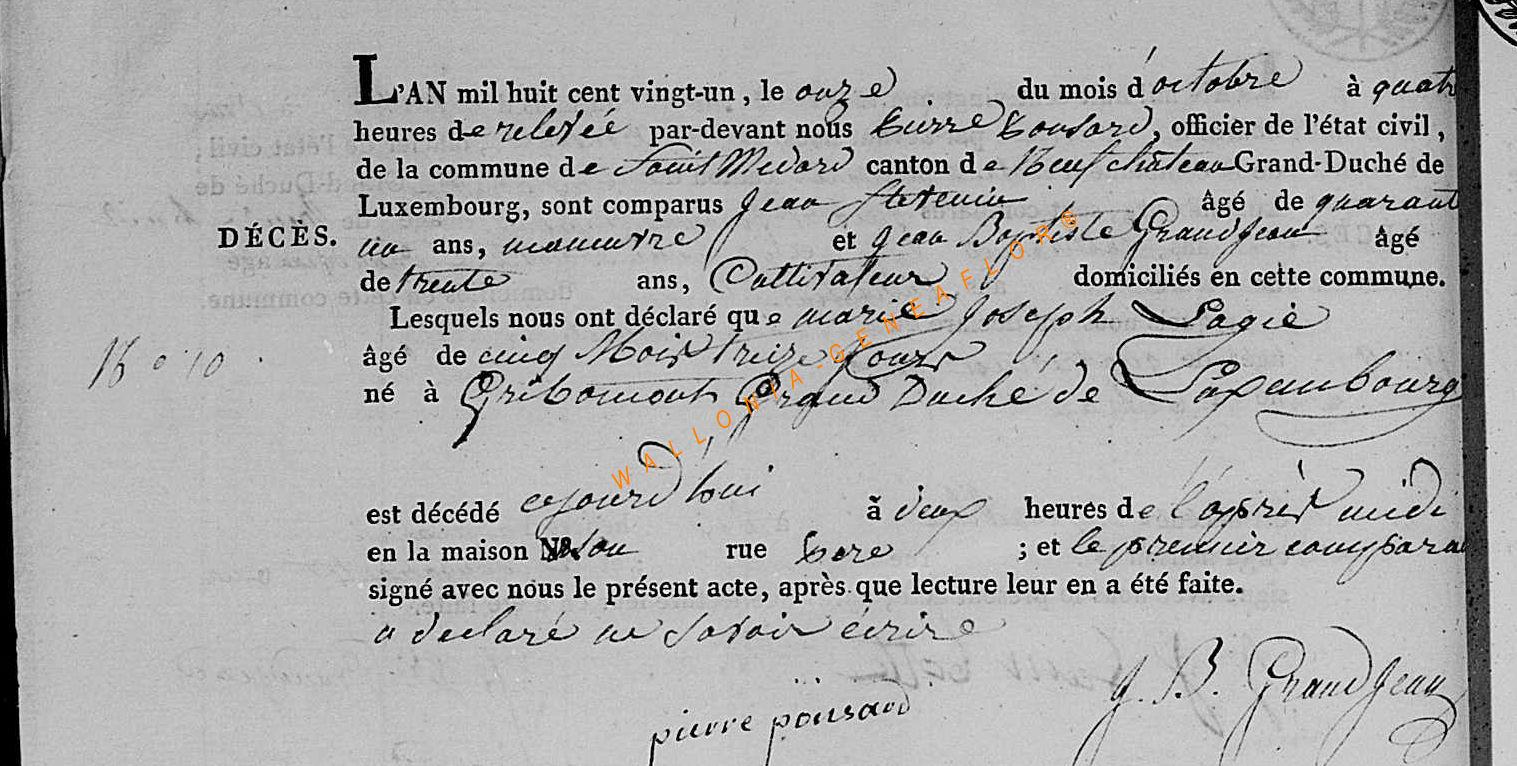 L'AN mil huit cent vingt-un, le onze du mois d'octobre à quatr
heures de relevée par-devant nous Pierre Ponsard, officier de l'état civil,
de la commune de Saint Medard canton de Neufchateau Grand-Duché de
Luxembourg, sont comparus Jean âgé de quarant
DÉCÈS.
un ans, manuvre et Jean Baptiste Grandjean âgé
de trente ans, Cultivateur domiciliés en cette commune.
Lesquels nous ont déclaré que marie Joseph Lagie
âgé de cinq Mois treize Jours
né à Gribomont Grand Duché de Luxembourg
est décédé ajourd'hui à deux heures de l'après midi
en la maison No. son rue ; et le premier compara
signé avec nous le présent acte, après que lecture leur en a été faite.
a declaré ne savoir écrire
pierre ponsard
J. B. Grandjean
WALLONIA-GENEAFLORS